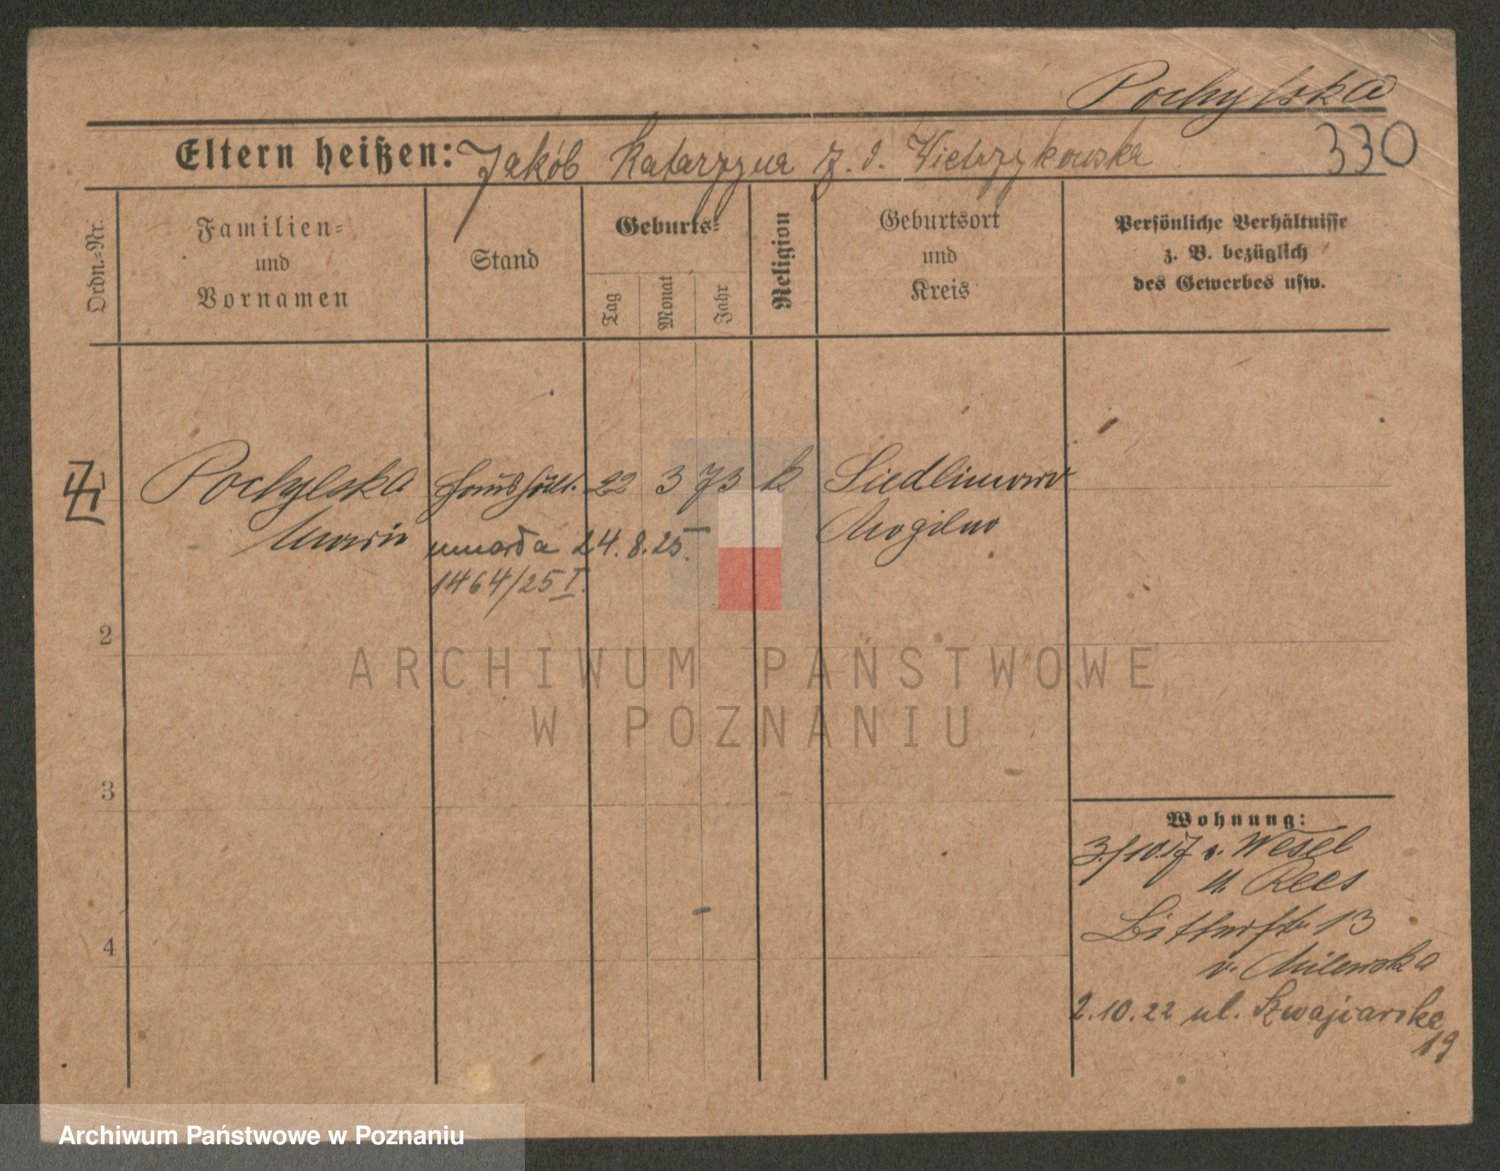 Pochylska
Eltern heißen: Jakób Katarzyna z. d. Wietrzykowska 330
Ordn.-Nr.
Familien-
und
Vornamen
Stand
Geburts-
Tag
Monat
Jahr
Religion
Geburtsort
und
Kreis
Persönliche Verhältnisse
z. B. bezüglich
des Gewerbes usw.
1 Pochylska 22 3 73 k Siedlimowo
Maria umarła 24.8.25. Mogilno
1464/25 I.
2
3
4
Wohnung:
v. Wesel
u. Rees
Bitterstr. 13
v. Milewska
2.10.22 ul. Szwajcarska
19
ARCHIWUM PAŃSTWOWE
W POZNANIU
Archiwum Państwowe w Poznaniu